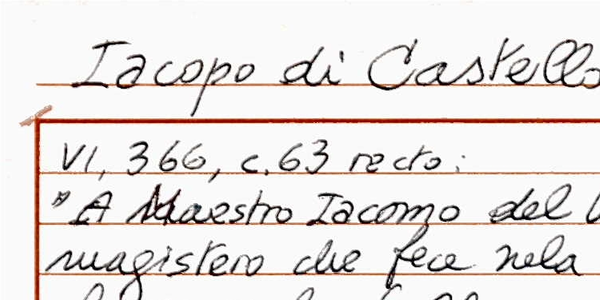 Iacopo di Castello
VI, 366, c. 63 recto:
"A Maestro Iacomo del
magistero che fece nela